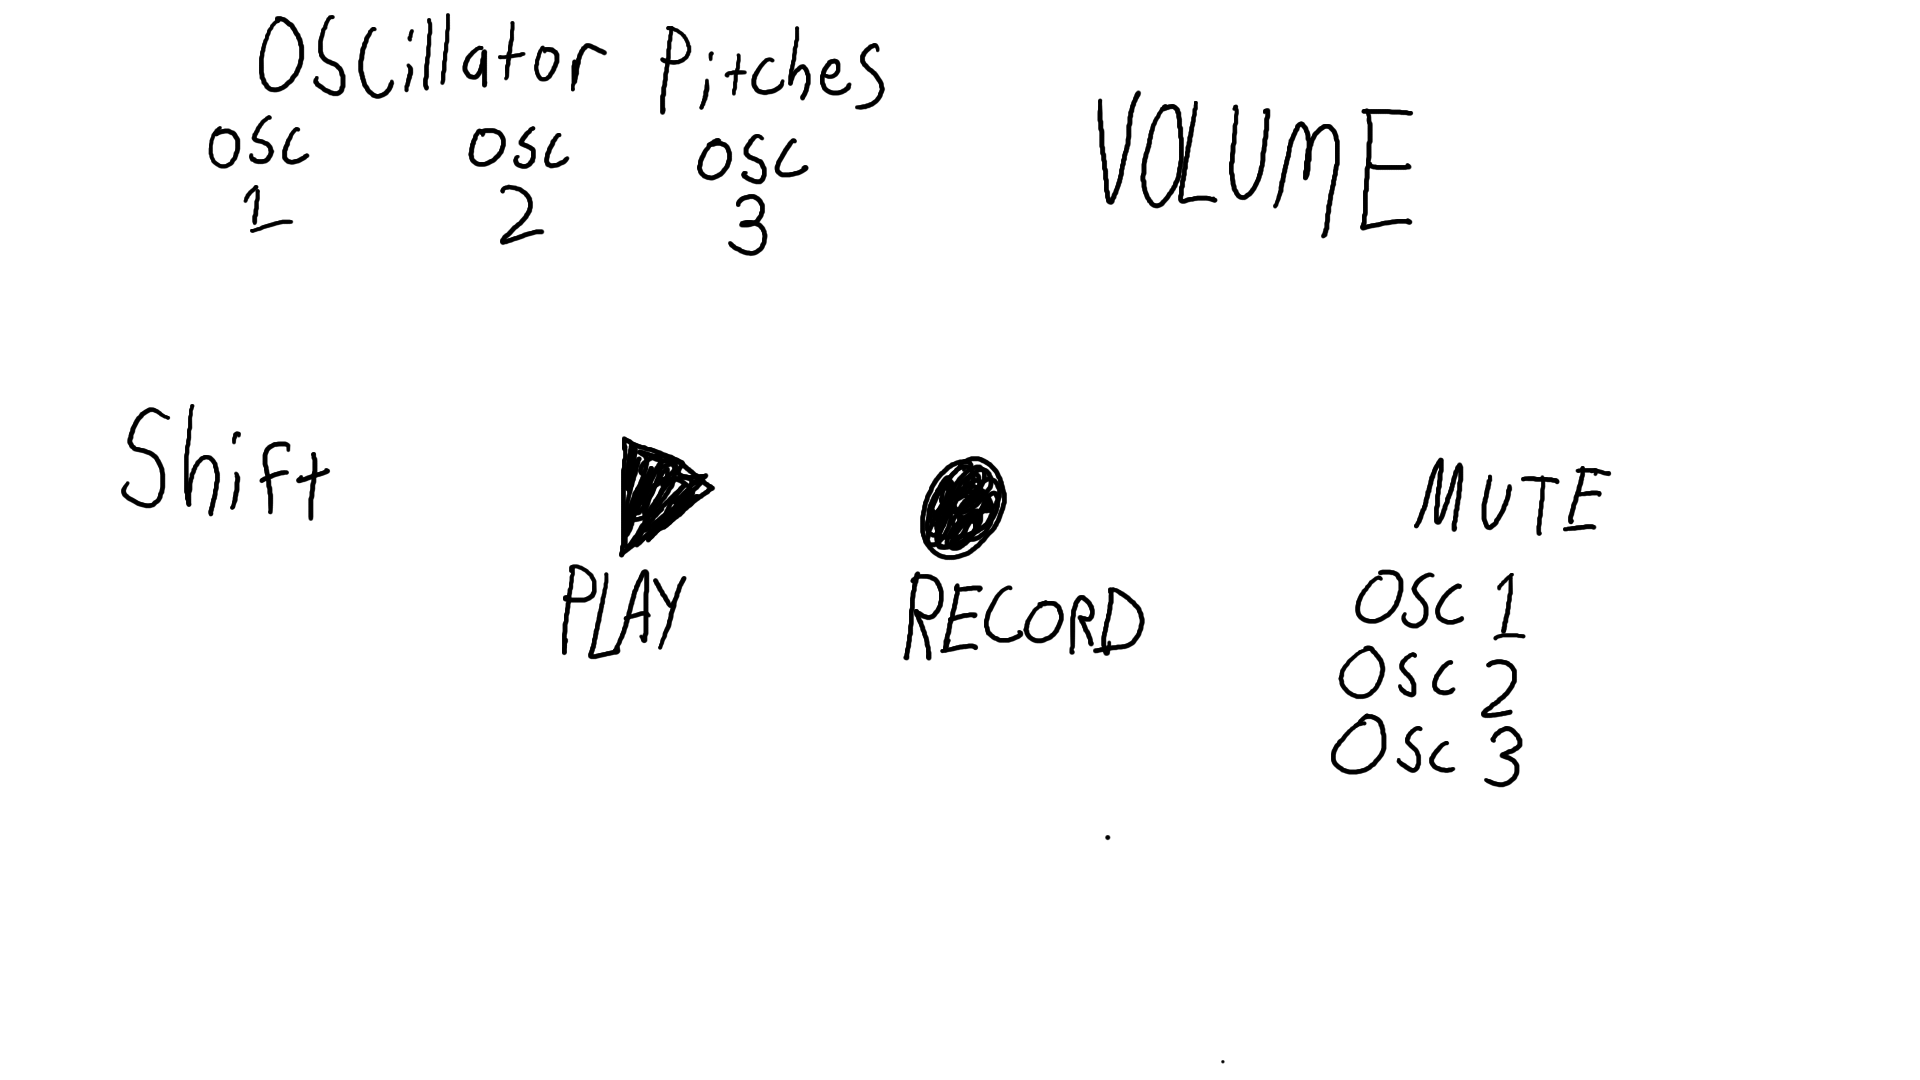 OSCillator Pitches
OSC OSC OSC
1 2 3
VOLUME
Shift
PLAY
RECORD
MUTE
OSC 1
OSC 2
OSC 3